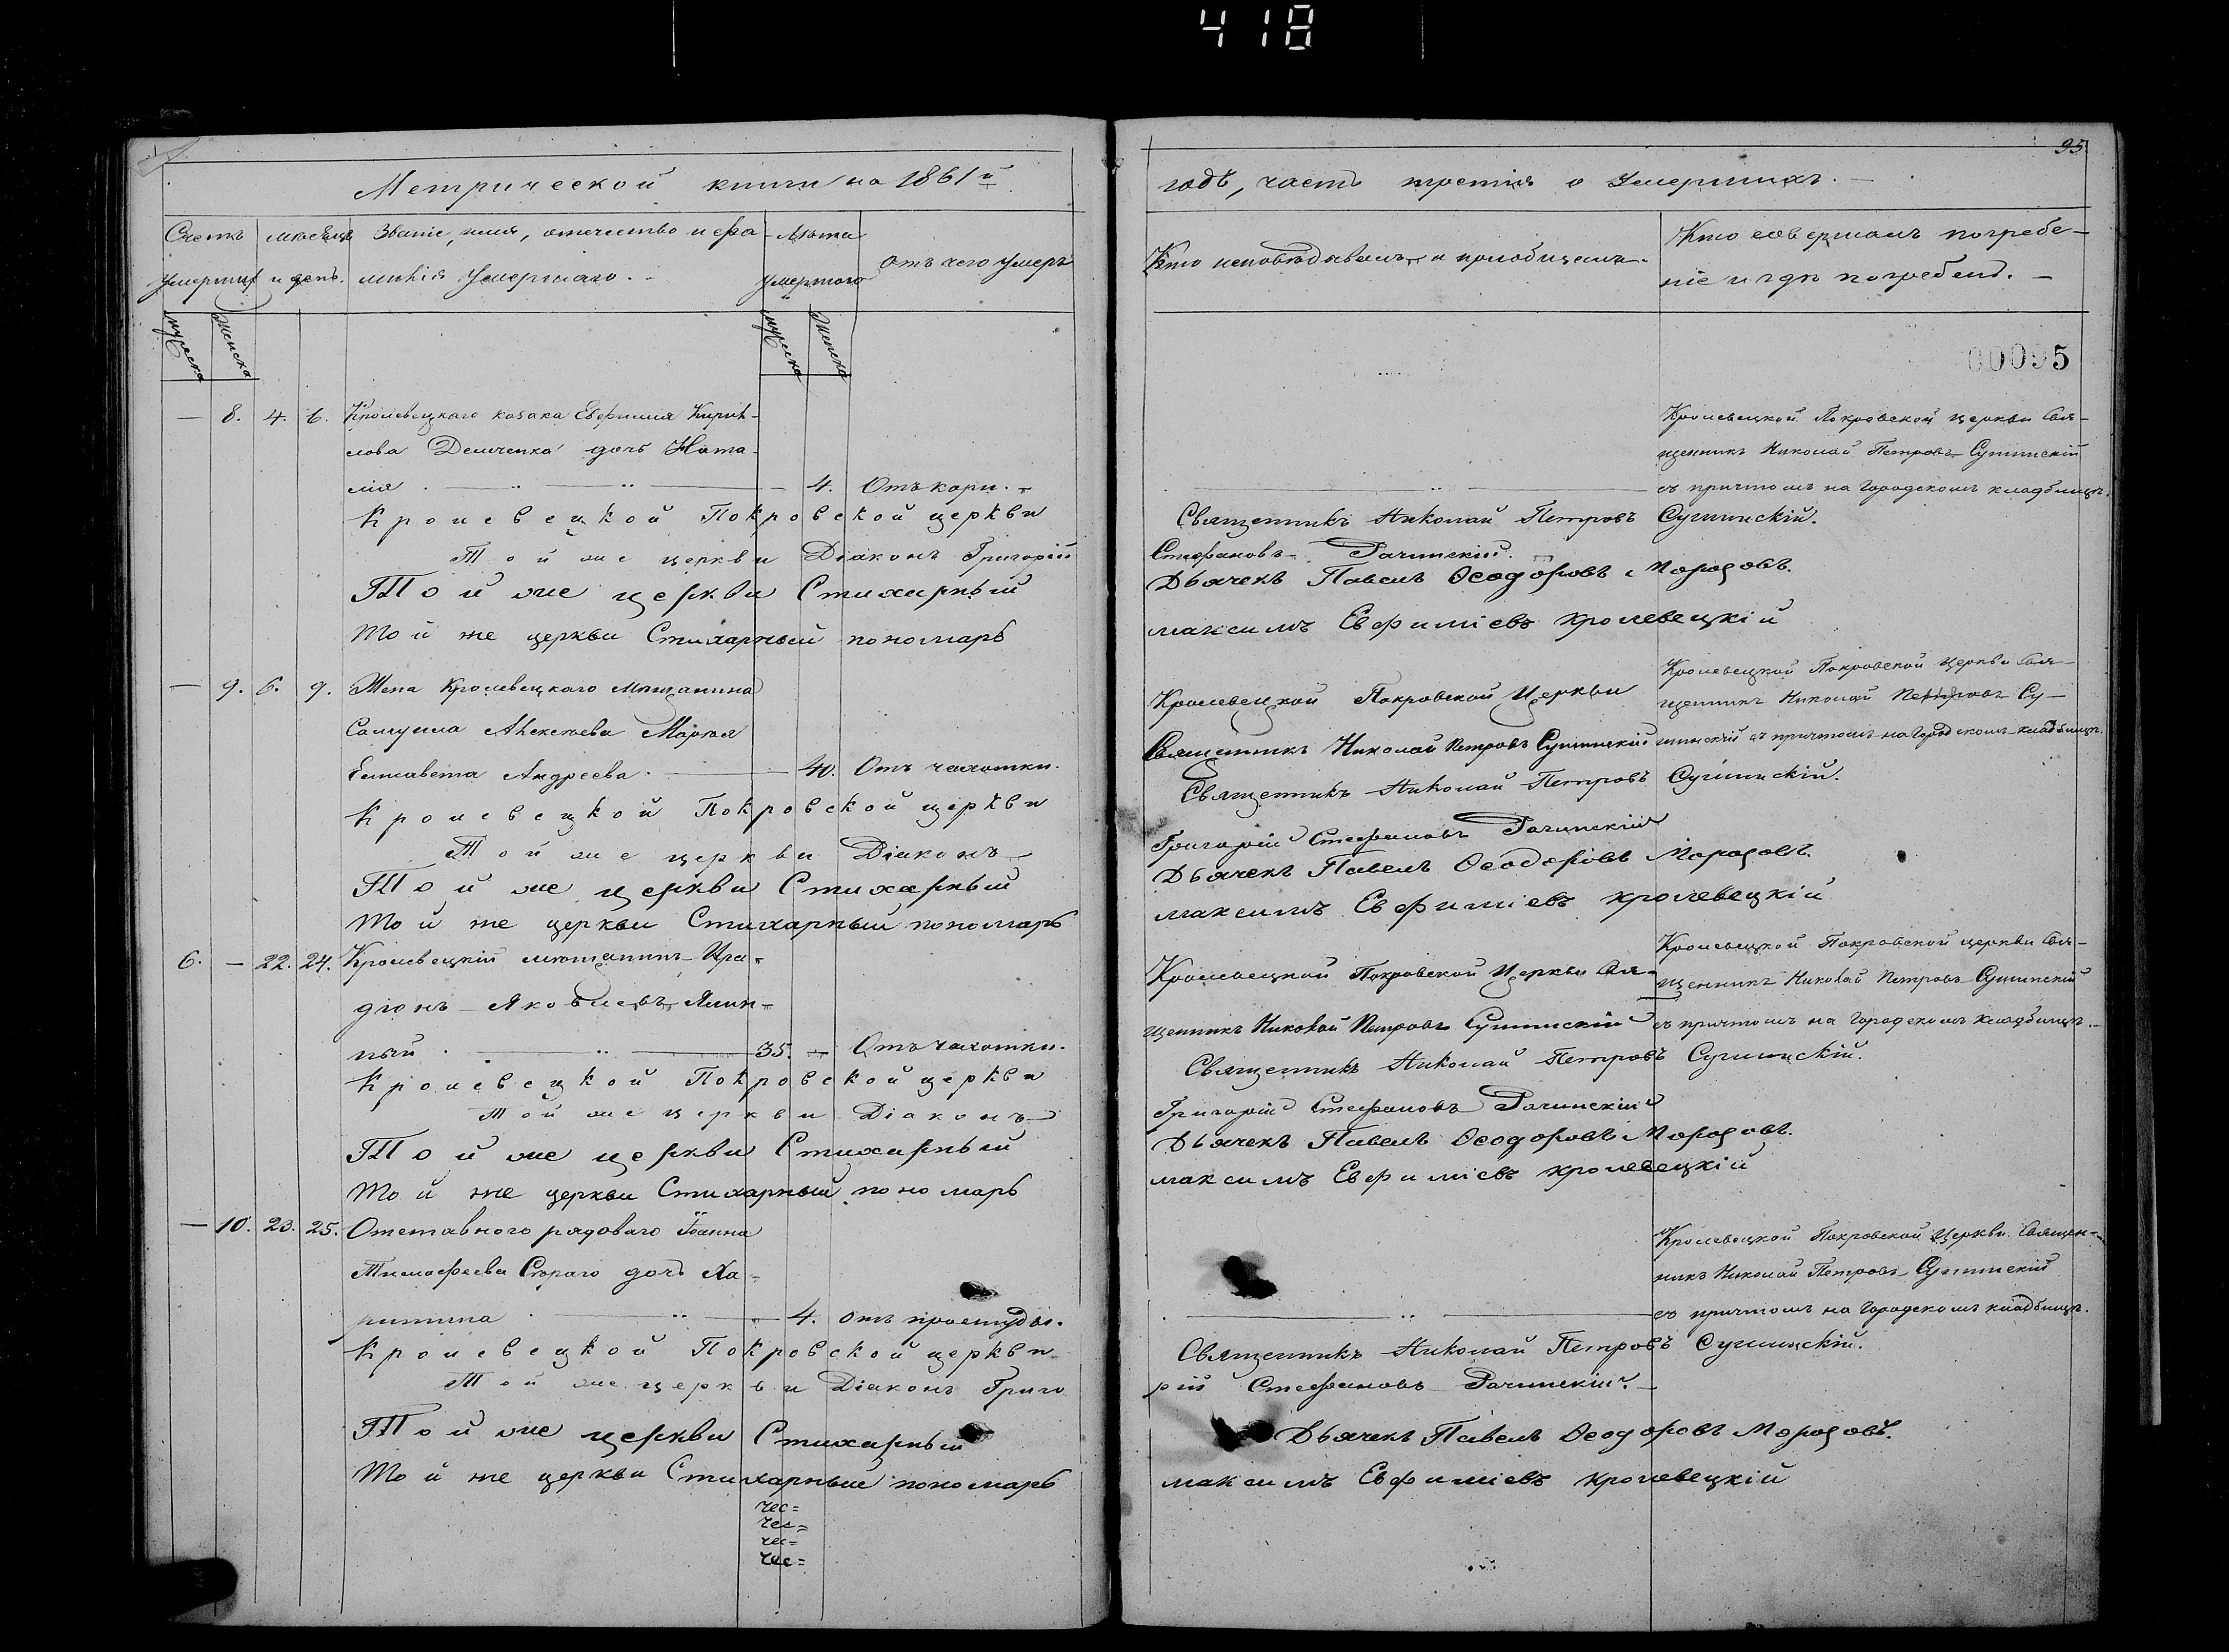 418
Метрической книги на 1861й
Счетъ умершихъ
мужеска
женска
мѣсяцъ и день.
Званіе, имя, отечество и фамилія умершаго.
Лѣта умершаго
мужеска
женска
отъ чего умеръ
— 8. 4. 6. Кролевецкаго козака Евфимія Кирил-
лова Демченка дочь Ната-
лія — 4. Отъ кори.
Кролевецкой Покровской церкви
Той же церкви Діаконъ Григорій
Той же церкви Стихарный
Той же церкви Стихарный пономарь
— 9. 6. 9. Жена Кролевецкаго мѣщанина
Самуила Алексѣева
Елисавета Андреева. — 40. Отъ чахотки.
Кролевецкой Покровской церкви
Той же церкви Діаконъ
Той же церкви Стихарный
Той же церкви Стихарный пономарь
6. — 22. 24. Кролевецкій мѣщанинъ Ира-
діонъ Яковлевъ
ный — 35. — Отъ чахотки.
Кролевецкой Покровской церкви
Той же церкви Діаконъ
Той же церкви Стихарный
Той же церкви Стихарный пономарь
— 10. 23. 25. Отставного рядоваго Іоанна
Тимофеева дочь Ха-
ритина — 4. отъ простуды.
Кролевецкой Покровской церкви
Той же церкви Діаконъ Григо
Той же церкви Стихарный
Той же церкви Стихарный пономарь
чес=
чес=
чес=
чес=
95
годъ, часть третія о умершихъ.
Кто исповѣдывалъ и пріобщалъ.
Кто совершалъ погребе-
ніе и гдѣ погребены.
00095
Кролевецкой Покровской церкви Свя-
щенникъ Николай Петровъ Сушинскій
съ причтомъ на Городскомъ кладбищѣ.
Священникъ Николай Петровъ Сушинскій.
Стефановъ Рачинскій.
Дьячекъ Павелъ Ѳеодоровъ Морозовъ.
максимъ Евфиміевъ кролевецкій
Кролевецкой Покровской Церкви
Священникъ Николай Петровъ Сушинскій
Кролевецкой Покровской Церкви Свя-
щенникъ Николай Петровъ Су-
шинскій съ причтомъ на Городскомъ кладбищѣ.
Священникъ Николай Петровъ Сушинскій.
Григорій Стефановъ Рачинскій
Дьячекъ Павелъ Ѳеодоровъ Морозовъ.
максимъ Евфиміевъ кролевецкій
Кролевецкой Покровской Церкви Свя-
щенникъ Николай Петровъ Сушинскій
Кролевецкой Покровской церкви Свя-
щенникъ Николай Петровъ Сушинскій
съ причтомъ на Городскомъ кладбищѣ.
Священникъ Николай Петровъ Сушинскій.
Григорій Стефановъ Рачинскій
Дьячекъ Павелъ Ѳеодоровъ Морозовъ.
максимъ Евфиміевъ кролевецкій
Кролевецкой Покровской Церкви Священ-
никъ Николай Петровъ Сушинскій
съ причтомъ на Городскомъ кладбищѣ.
Священникъ Николай Петровъ Сушинскій.
рій Стефановъ Рачинскій.
Дьячекъ Павелъ Ѳеодоровъ Морозовъ.
максимъ Евфиміевъ кролевецкій